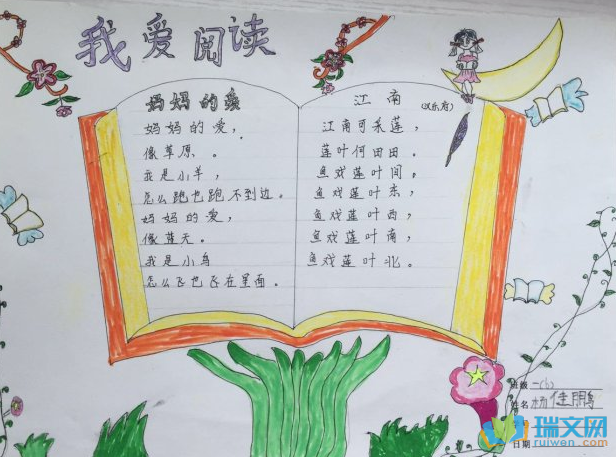 我爱阅读
妈妈的爱
妈妈的爱，
像草原。
我是小羊，
怎么跑也跑不到边。
妈妈的爱，
像蓝天。
我是小鸟
怎么飞也飞在里面。
江南
（汉乐府）
江南可采莲，
莲叶何田田。
鱼戏莲叶间。
鱼戏莲叶东，
鱼戏莲叶西，
鱼戏莲叶南，
鱼戏莲叶北。
班级 一(6)
姓名 杨健鹏
日期
瑞文网
ruiwen.com